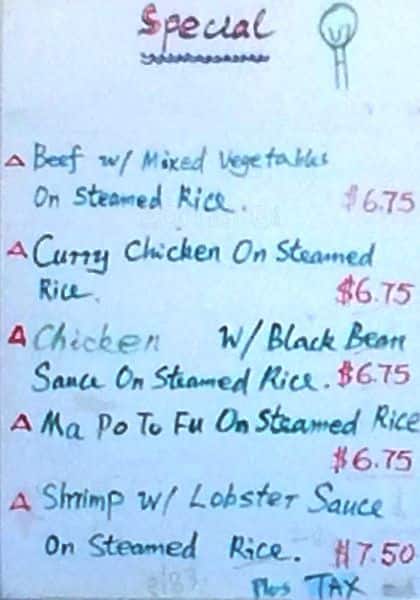 Special
Beef w/ Mixed Vegetables
On Steamed Rice. $6.75
Curry Chicken On Steamed
Rice. $6.75
Chicken W/ Black Bean
Sauce On Steamed Rice. $6.75
Ma Po To Fu On Steamed Rice
$6.75
Shrimp w/ Lobster Sauce
On Steamed Rice. $7.50
Plus TAX